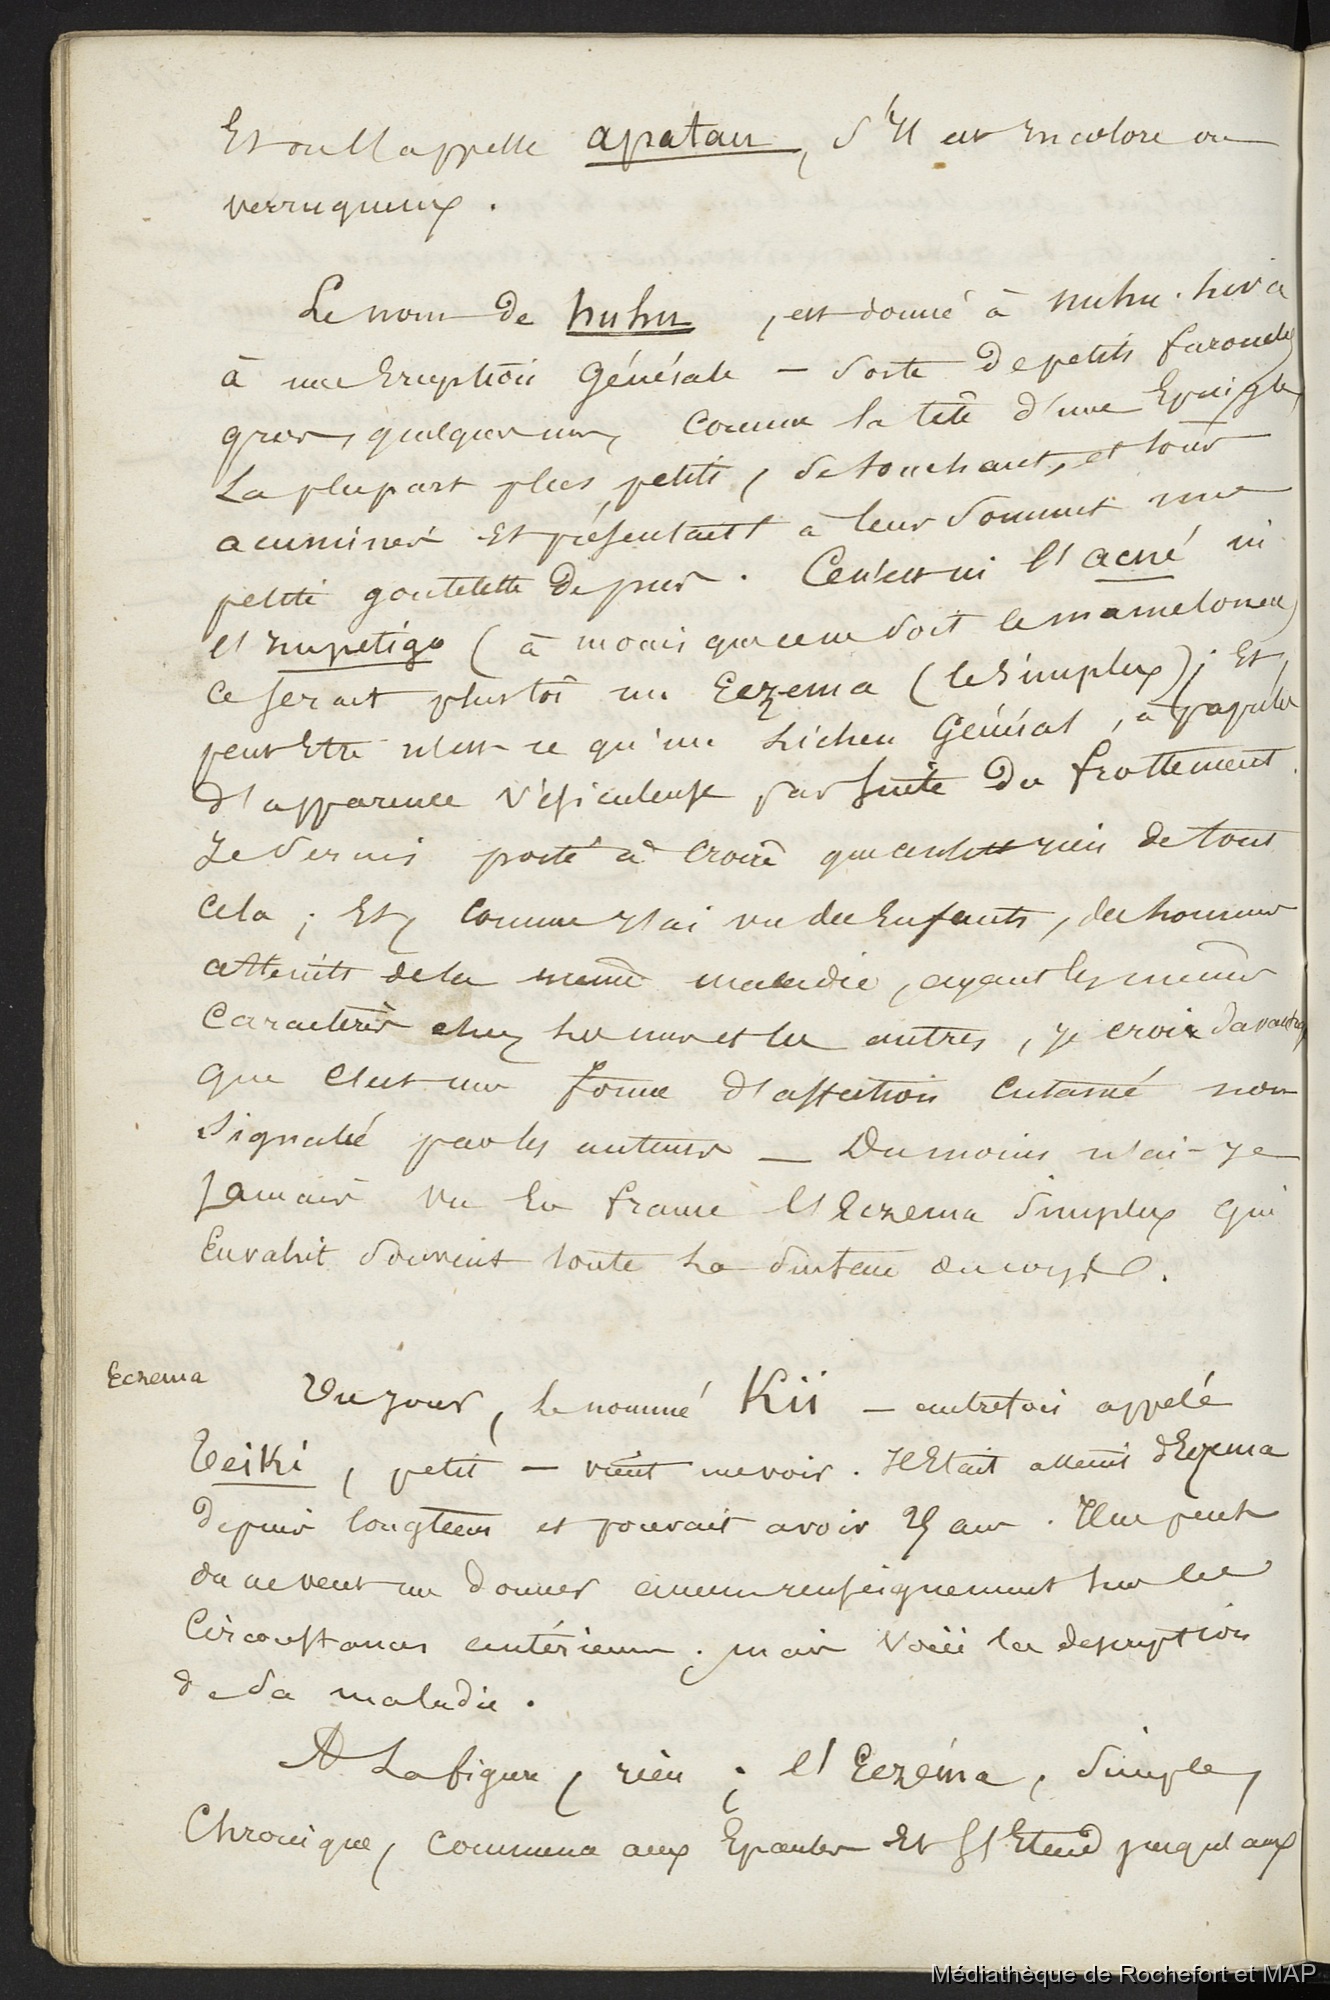 Et on l'appelle apatau, s'il est incolore ou
verruqueux.
Le nom de huhu, est donné à nuhu-hiva
à une Eruption Générale — sorte de petits furoncles
gros, quelques uns, comme la tête d'une Epingle,
La plupart plus petits, se touchant, et tous
acuminés Et présentant à leur sommet une
petite goutelette de pus. Ce n'est ni l'acné ni
l'impetigo (à moins que ce ne soit le mamelonné)
ce serait plustôt un Eczema (le Simplex); Et,
peut Etre n'est-ce qu'un Lichen Général, à papules
d'apparence vésiculeuse par suite du frottement.
Je serais porté à croire que ce n'est rien de tout
cela; Et, comme j'ai vu des Enfants, des hommes
atteints de la meme maladie, ayant les mêmes
caractères chez les uns et les autres, je crois davantage
que c'est une forme d'affection cutanée non
signalée par les auteurs — Du moins n'ai-je
jamais vu En france l'Eczema Simplex qui
Envahit souvent toute la surface du corps.
Eczema
Un jour, le nommé Kii — autrefois appelé
Teiki, petit — vient me voir. Il Etait atteint d'Eczema
depuis longtems et pouvait avoir 25 ans. Il ne peut
ou ne veut me donner aucun renseignement sur les
Circonstances antérieures; mais voici la description
de sa maladie.
A La figure, rien; l'Eczéma, Simple,
Chronique, commence aux Epaules Et s'Etend jusqu'aux
Médiathèque de Rochefort et MAP